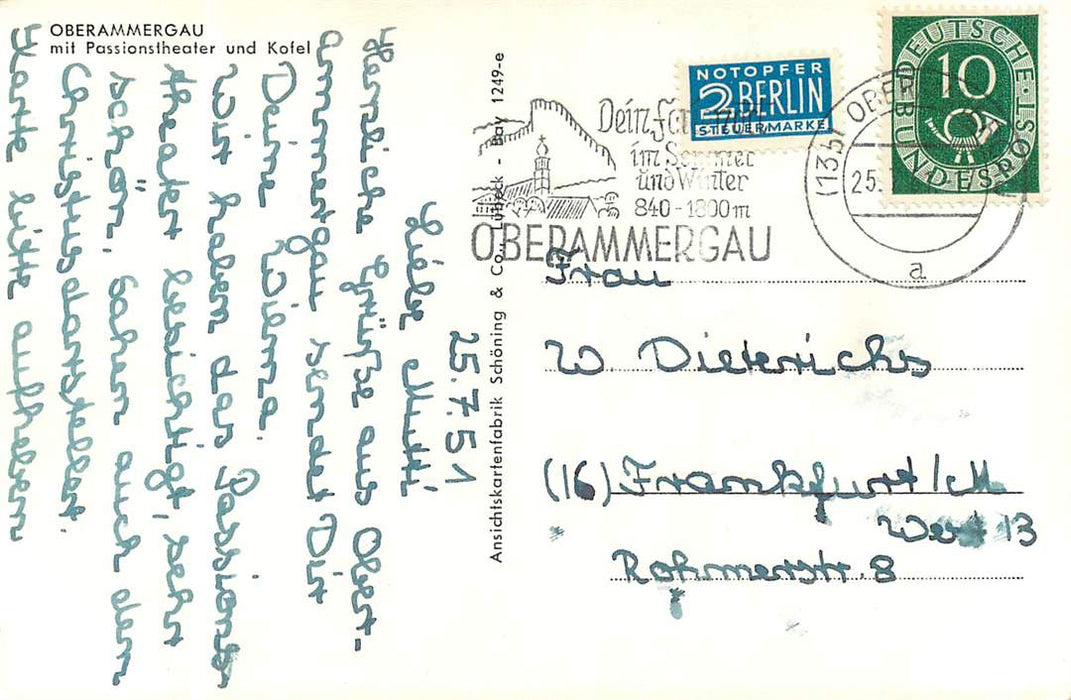 OBERAMMERGAU
mit Passionstheater und Kofel
25.7.51
Liebe Mutti
Herzliche Grüße aus Ober-
ammergau sendet Dir
Deine Wienna.
Wir haben das Passions-
theater besichtigt, sehr
schön, sahen auch den
Christusdarsteller.
Karte bitte aufheben
Ansichtskartenfabrik Schöning & Co., Lübeck - Bay 1249-e
Dein
im Sommer
und Winter
840-1800m
OBERAMMERGAU
NOTOPFER
2 BERLIN
STEUERMARKE
(13b) OBER
25.
a
DEUTSCHE BUNDESPOST
10
Frau
W. Dieterichs
(16) Frankfurt/M
West 13
Rohmerstr. 8